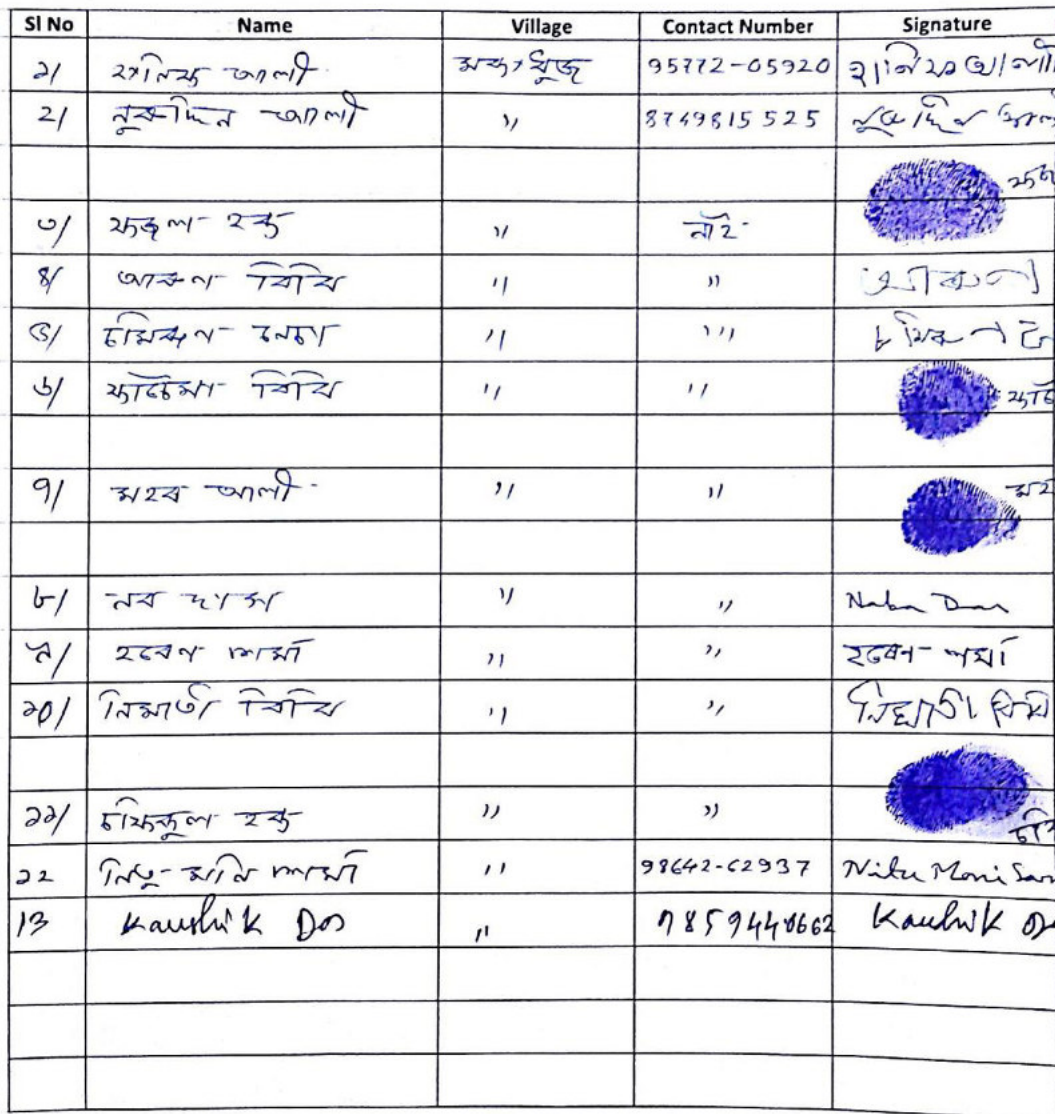 Sl No Name Village Contact Number Signature
১/ হানিফ আলী 95772-05920 হানিফ আলী
২/ নুৰুদ্দিন আলী " 8749815525 নুৰুদ্দিন
৩/ ফজল হক " নাই-
৪/ আৰুণ বিবি " "
৫/ চমিৰুণ নেচা " "' চমিৰুণ
৬/ ফাটেমা বিবি " "
৭/ মহৰ আলী " "
৮/ নব দাস " " Naba Das
৯/ হৰেণ শৰ্মা " " হৰেণ শৰ্মা
১০/ বিবি " "
১১/ চফিকুল হক " "
১২ নিতু মনি শৰ্মা " 98642-62937 Nitu Moni Sar
13 Kaushik Das " 7859440662 Kaushik Da